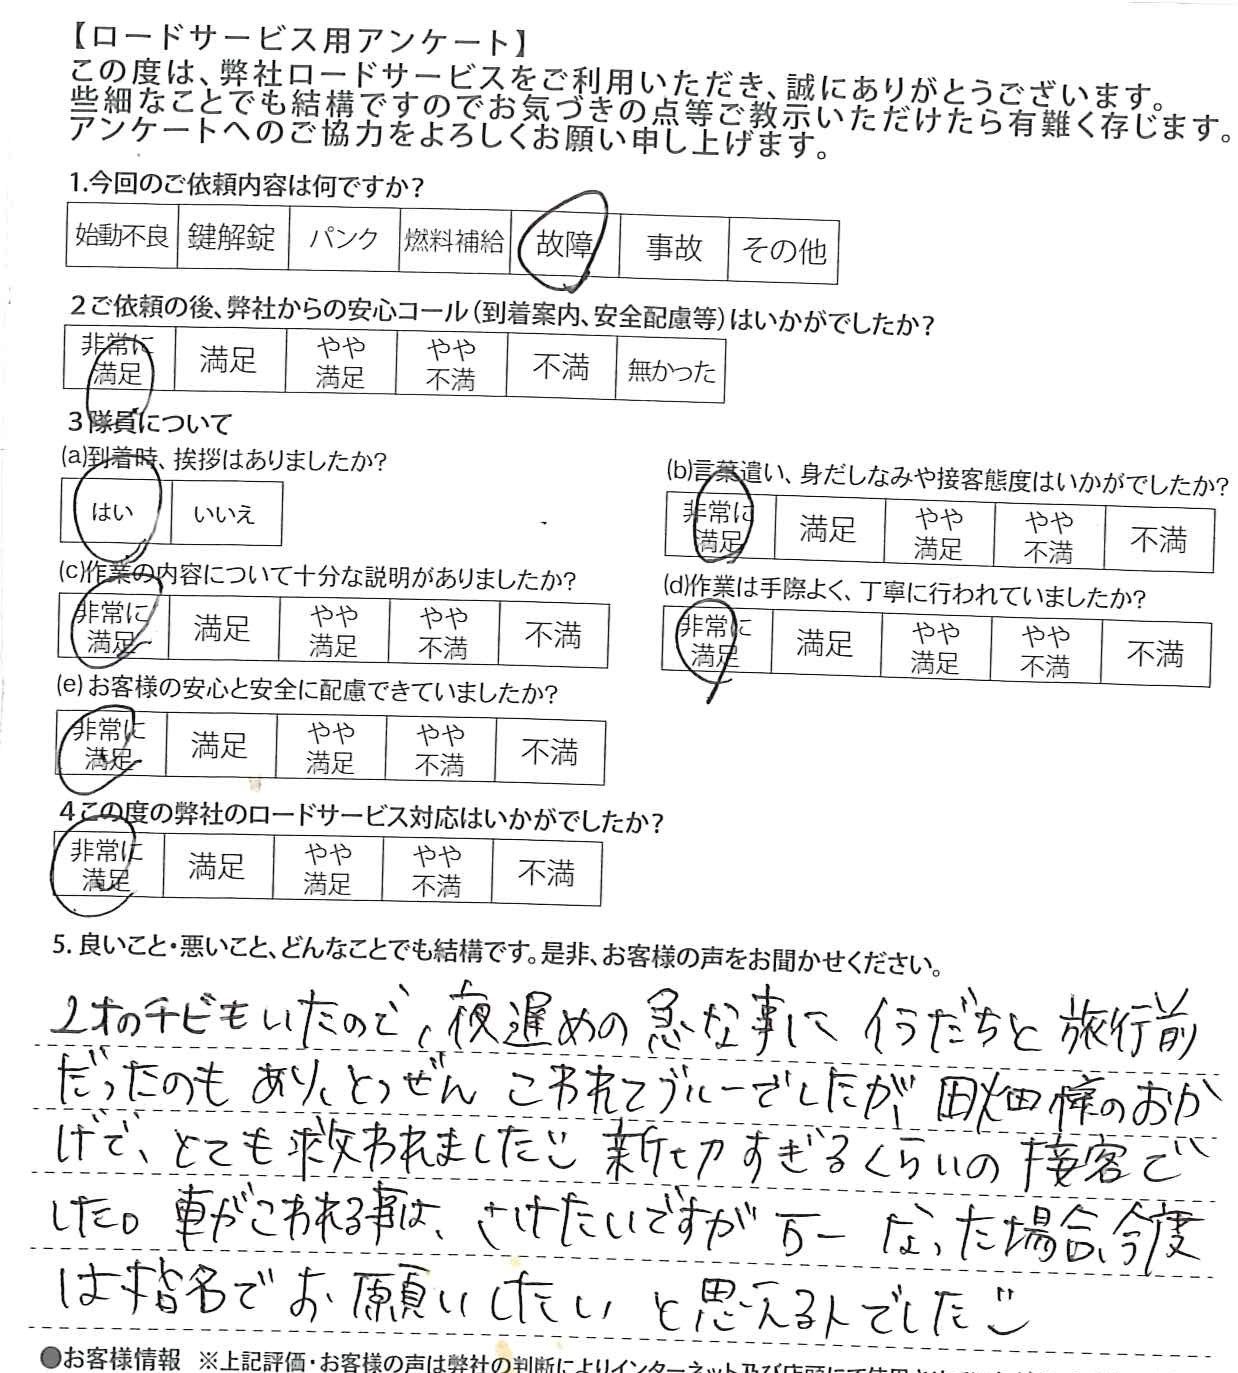 【ロードサービス用アンケート】
この度は、弊社ロードサービスをご利用いただき、誠にありがとうございます。
些細なことでも結構ですのでお気づきの点等ご教示いただけたら有難く存じます。
アンケートへのご協力をよろしくお願い申し上げます。
1.今回のご依頼内容は何ですか?
始動不良 鍵解錠 パンク 燃料補給 故障 事故 その他
2ご依頼の後、弊社からの安心コール(到着案内、安全配慮等)はいかがでしたか?
非常に満足 満足 やや満足 やや不満 不満 無かった
3隊員について
(a)到着時、挨拶はありましたか?
はい いいえ
(b)言葉遣い、身だしなみや接客態度はいかがでしたか?
非常に満足 満足 やや満足 やや不満 不満
(c)作業の内容について十分な説明がありましたか?
非常に満足 満足 やや満足 やや不満 不満
(d)作業は手際よく、丁寧に行われていましたか?
非常に満足 満足 やや満足 やや不満 不満
(e)お客様の安心と安全に配慮できていましたか?
非常に満足 満足 やや満足 やや不満 不満
4この度の弊社のロードサービス対応はいかがでしたか?
非常に満足 満足 やや満足 やや不満 不満
5.良いこと・悪いこと、どんなことでも結構です。是非、お客様の声をお聞かせください。
2才のチビもいたので、夜遅めの急な事に イラだちと 旅行前
だったのも あり、とつぜん こわれてブルーでしたが、田畑様のおか
げで、とても救われました 親切すぎるくらいの 接客で
した。車がこわれる事は、さけたいですが 万一 なった場合、今度
は指名でお願いしたい と思える人でした
●お客様情報 ※上記評価・お客様の声は弊社の判断によりインターネット及び店頭にて使用